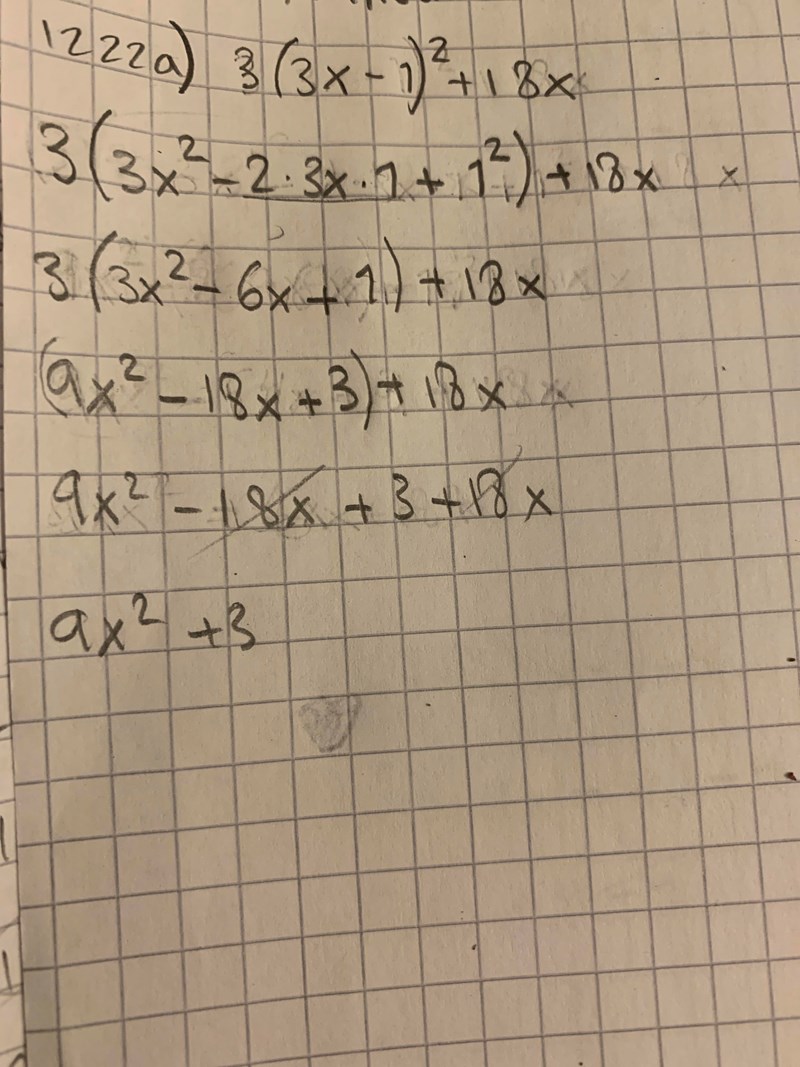 1222a) 3(3x - 1)² + 18x
3(3x² - 2·3x·1 + 1²) + 18x x
3(3x² - 6x + 1) + 18x
(9x² - 18x + 3) + 18x
9x² - 18x + 3 + 18x
9x² + 3